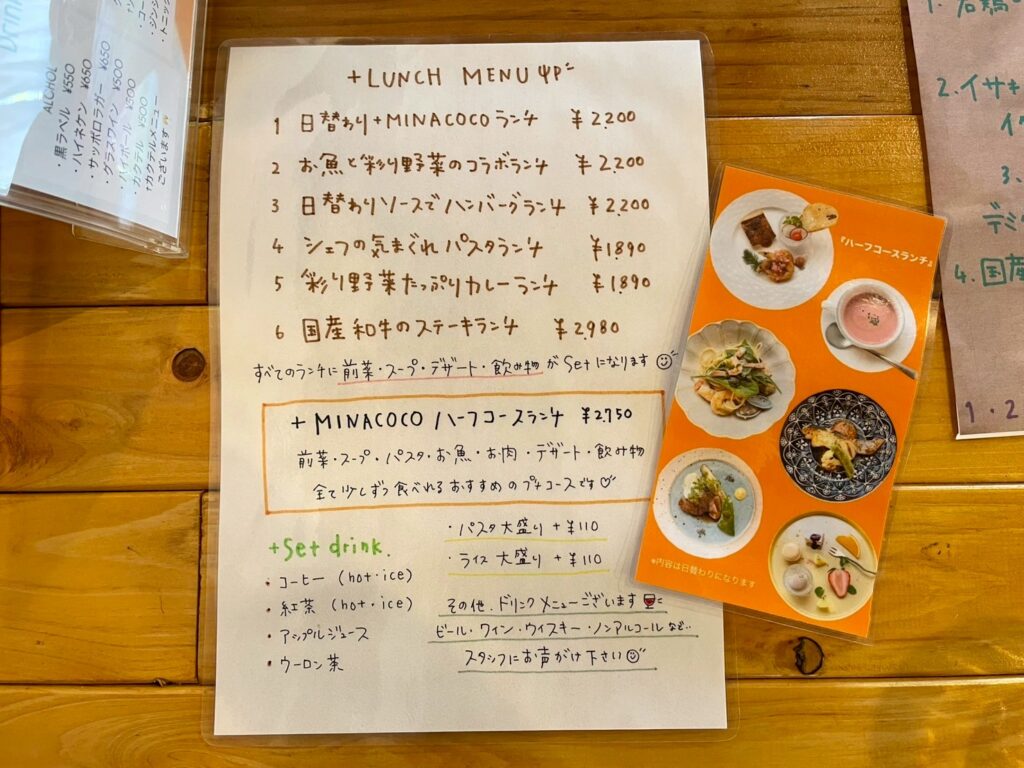 +LUNCH MENU
1 日替わり+MINACOCOランチ ¥2,200
2 お魚と彩り野菜のコラボランチ ¥2,200
3 日替わりソースでハンバーグランチ ¥2,200
4 シェフの気まぐれパスタランチ ¥1,890
5 彩り野菜たっぷりカレーランチ ¥1,890
6 国産和牛のステーキランチ ¥2,980
すべてのランチに前菜・スープ・デザート・飲み物がSetになります
+MINACOCOハーフコースランチ ¥2,750
前菜・スープ・パスタ・お魚・お肉・デザート・飲み物
全て少しずつ食べれるおすすめのプチコースです♡
+Set drink.
・コーヒー (hot・ice)
・紅茶 (hot・ice)
・アップルジュース
・ウーロン茶
・パスタ大盛り +¥110
・ライス大盛り +¥110
その他、ドリンクメニューございます
ビール・ワイン・ウイスキー・ノンアルコールなど..
スタッフにお声がけ下さい
『ハーフコースランチ』
*内容は日替わりになります
Drink
ALCHOL
・黒ラベル ¥550
・ハイネケン ¥650
・サッポロラガー ¥650
・グラスワイン ¥500
・ハイボール ¥500
・カクテル ¥500
↑カクテルメニュー
ございます
2.イサキ
3、
デミ
4.国産
1・2